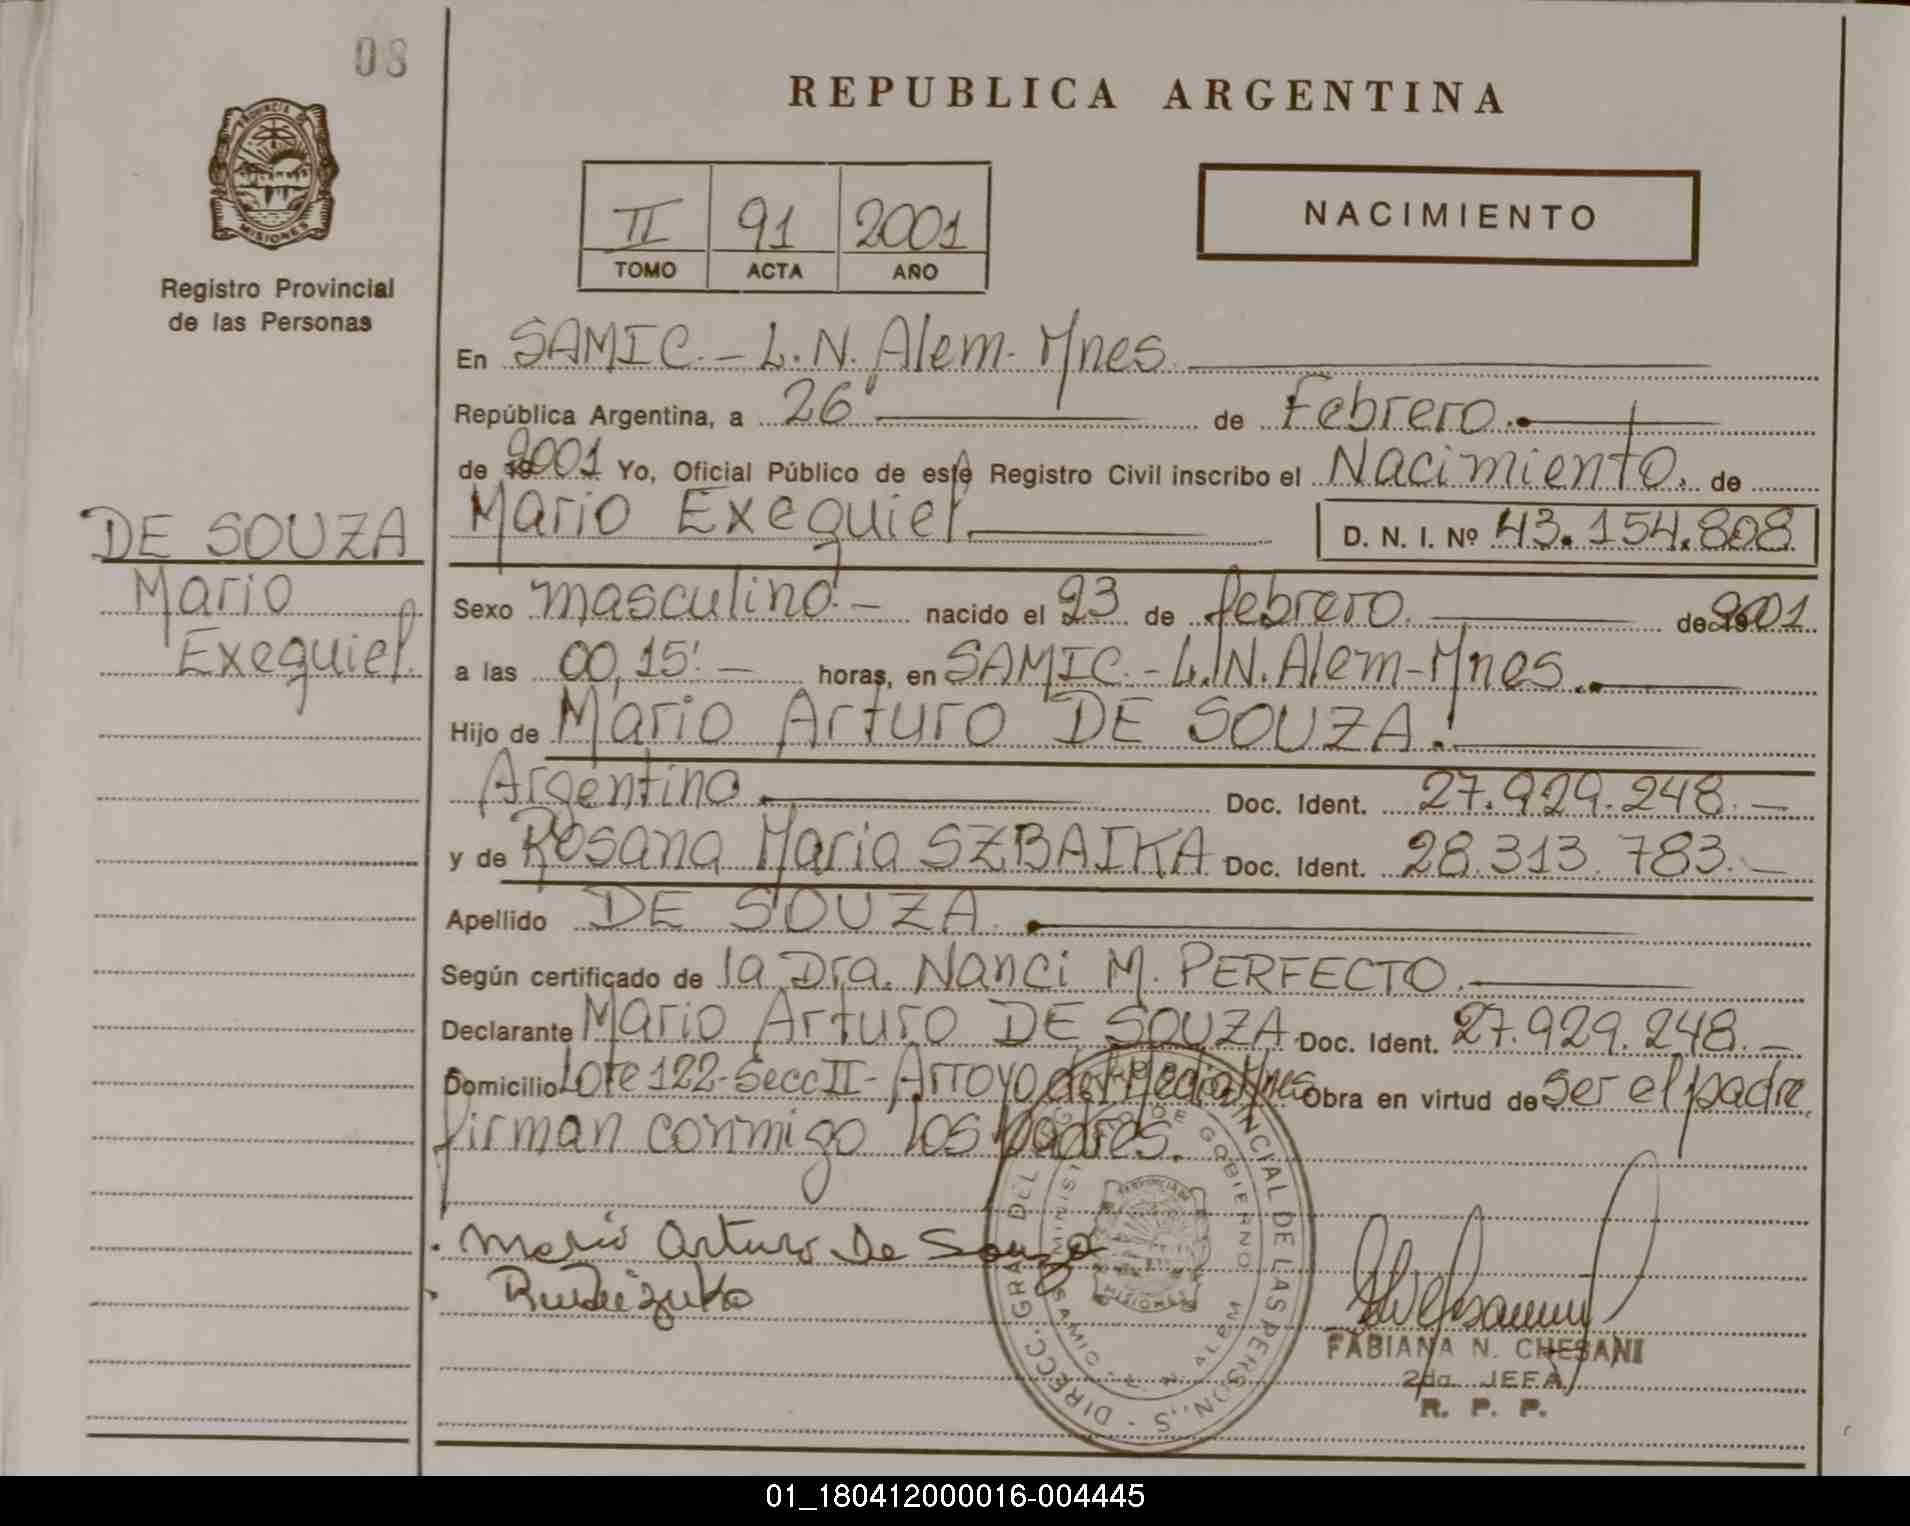 08
PROVINCIA DE
MISIONES
Registro Provincial
de las Personas
DE SOUZA
Mario
Exequiel.
REPUBLICA ARGENTINA
II 91 2001
TOMO ACTA AÑO
NACIMIENTO
En SAMIC.- L.N. Alem- Mnes.
República Argentina, a 26 de Febrero.
de 2001 Yo, Oficial Público de este Registro Civil inscribo el Nacimiento. de
Mario Exequiel. D. N. I. Nº 43.154.808
Sexo masculino.- nacido el 23 de febrero. de 2001
a las 00,15'.- horas, en SAMIC.- L.N. Alem-Mnes.
Hijo de Mario Arturo DE SOUZA.
Argentino Doc. Ident. 27.929.248.-
y de Rosana Maria SZBAIKA Doc. Ident. 28.313.783.-
Apellido DE SOUZA.
Según certificado de la Dra. Nanci M. PERFECTO.
Declarante Mario Arturo DE SOUZA Doc. Ident. 27.929.248.-
Domicilio Lote 122-Secc II- Arroyo del Medio Mnes Obra en virtud de ser el padre
firman conmigo los padres.
Mario Arturo De Souza
DIRECC. GRAL. DEL PROVINCIAL DE LAS PERSON.S
MINIST DE GOBIERNO
SAMIC - L. N. ALEM
PROVINCIA DE
MISIONES
FABIANA N. CHESANI
2da. JEFA
R. P. P.
01_180412000016-004445